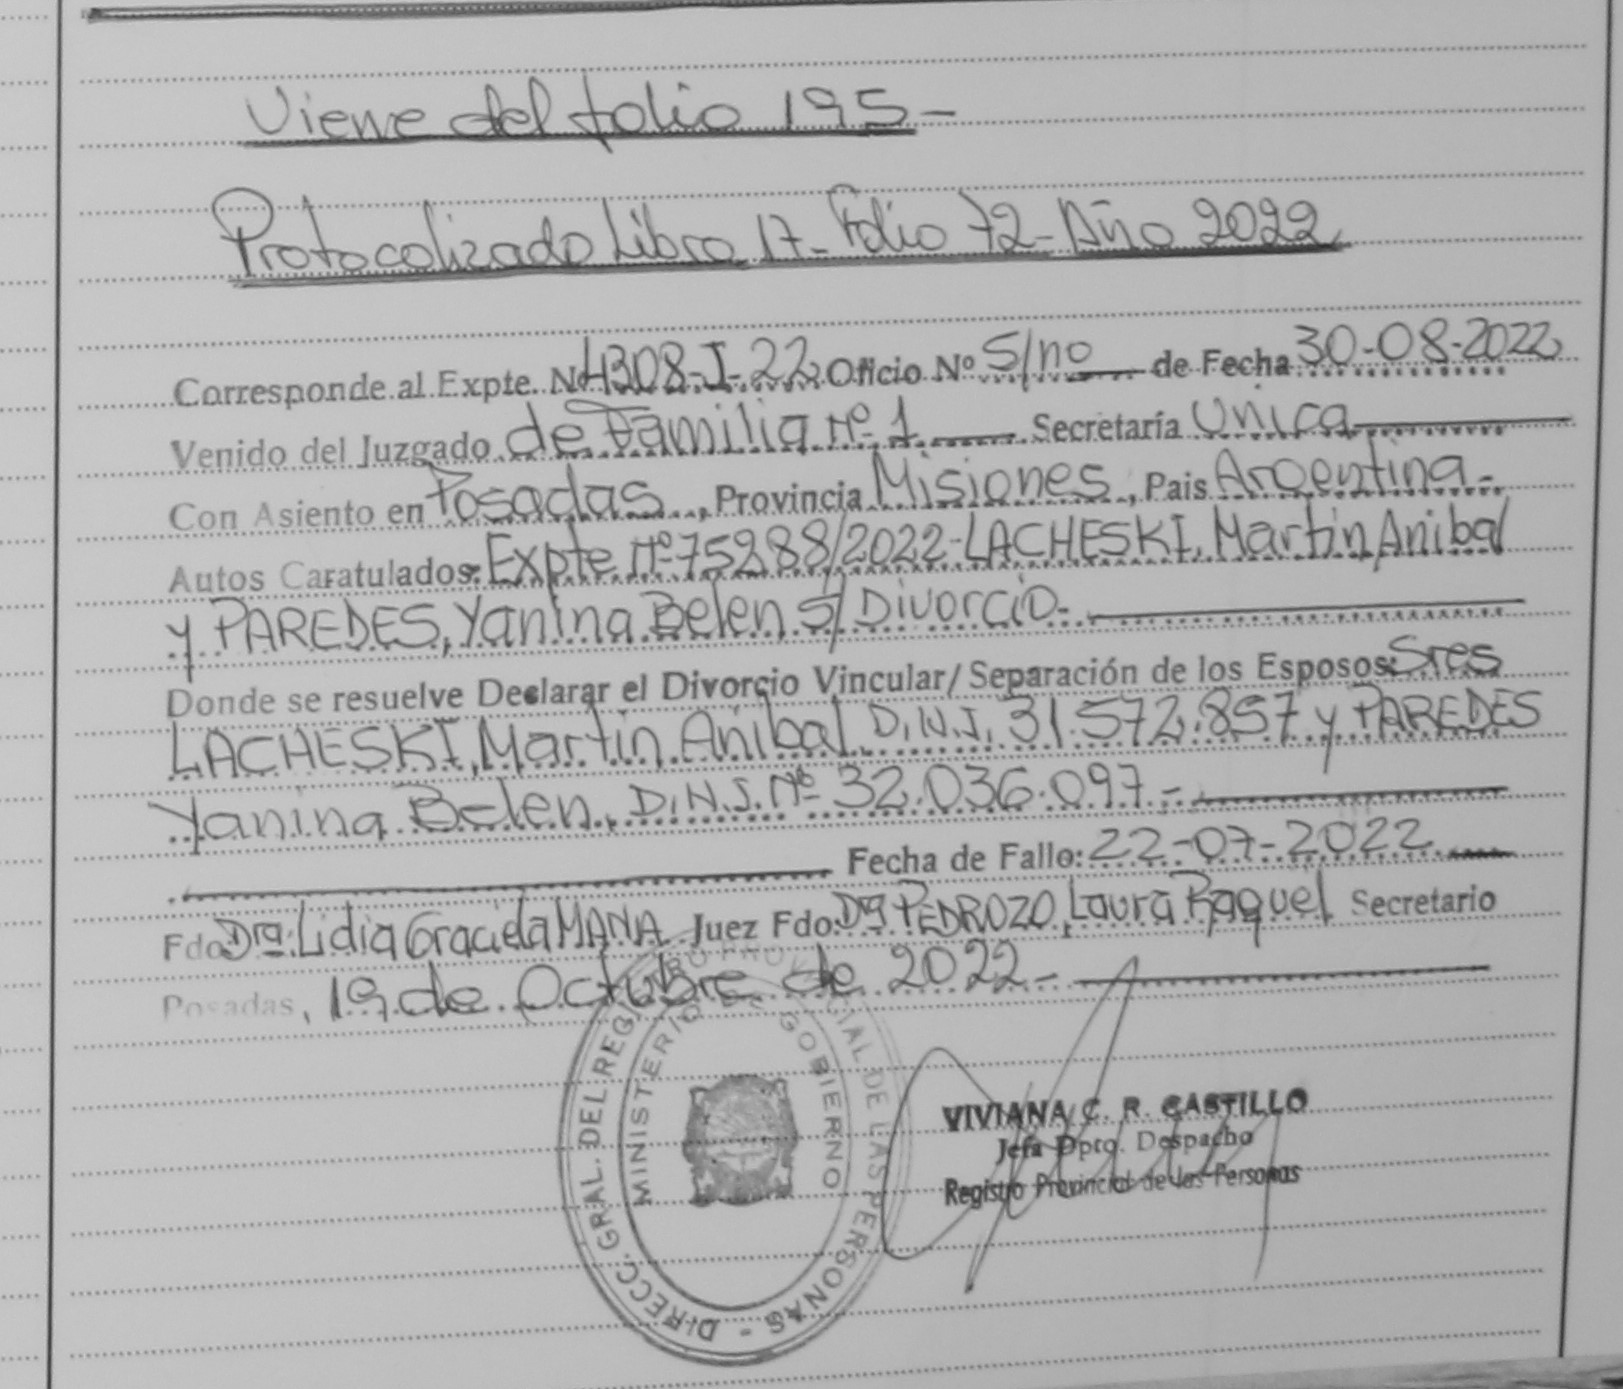 Viene del folio 195-
Protocolizado Libro 17- Folio 72- Año 2022
Corresponde al Expte. Nº 4308-J-22 Oficio Nº S/nº de Fecha 30-08-2022
Venido del Juzgado de Familia Nº 1 Secretaría Unica
Con Asiento en Posadas, Provincia Misiones, Pais Argentina-
Autos Caratulados: Expte Nº 75288/2022-LACHESKI, Martin Anibal
y PAREDES, Yanina Belen S/ Divorcio-
Donde se resuelve Declarar el Divorcio Vincular/ Separación de los Esposos: Sres
LACHESKI, Martin Anibal D.N.I. 31.572.857 y PAREDES
Yanina Belen, D.N.I. Nº 32.036.097-
Fecha de Fallo: 22-07-2022
Fdo Dra. Lidia Graciela MANA Juez Fdo: Dra PEDROZO, Laura Raquel Secretario
Posadas, 19 de Octubre de 2022-
DIRECC. GRAL. DEL REGISTRO PROVINCIAL DE LAS PERSONAS -
MINISTERIO DE GOBIERNO
VIVIANA C. R. CASTILLO
Jefa Dpto. Despacho
Registro Provincial de las Personas